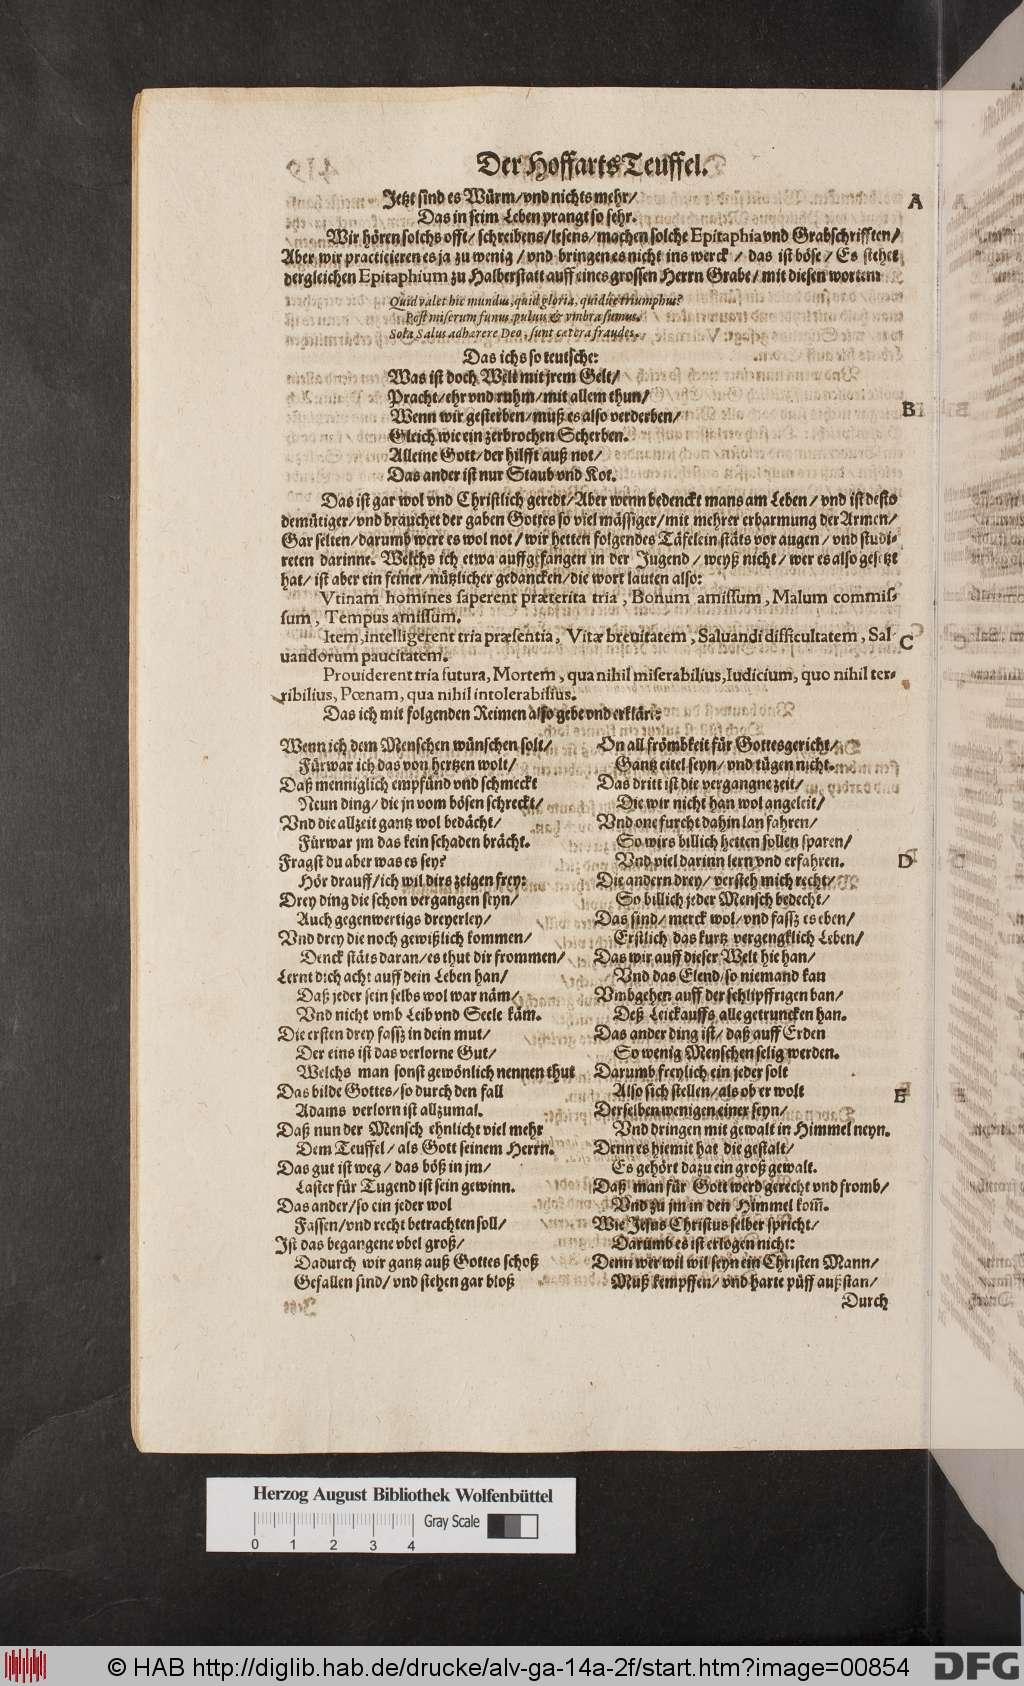 Der Hoffarts Teuffel.
Jetzt sind es Würm/vnd nichts mehr/
Das in seim Leben prangt so sehr.
Wir hören solchs offt/ schreibens/lesens/machen solche Epitaphia vnd Grabschrifften/
Aber wir practicieren es ja zu wenig/vnd bringen es nicht ins werck/ das ist böse/ Es stehet
dergleichen Epitaphium zu Halberstatt auff eines grossen Herrn Grabe/ mit diesen worten:
Quid valet hic mundus, quid gloria, quidue triumphus?
Post miserum funus, puluis & vmbra sumus.
Sola Salus adhærere Deo, sunt cætera fraudes.
Das ichs so teutsche:
Was ist doch Welt mit jrem Gelt/
Pracht/ehr vnd ruhm/mit allem thun/
Wenn wir gesterben/muß es also verderben/
Gleich wie ein zerbrochen Scherben.
Alleine Gott/der hilfft auß not/
Das ander ist nur Staub vnd Kot.
Das ist gar wol vnd Christlich geredt/Aber wenn bedenckt mans am Leben/ vnd ist desto
demütiger/vnd brauchet der gaben Gottes so viel mässiger/mit mehrer erbarmung der Armen/
Gar selten/darumb were es wol not/wir hetten folgendes Täfelein stäts vor augen/ vnd studi-
reten darinne. Welchs ich etwa auffgefangen in der Jugend/weyß nicht/ wer es also gesetzt
hat/ ist aber ein feiner/nützlicher gedancken/die wort lauten also:
Vtinam homines saperent præterita tria, Bonum amissum, Malum commis-
sum, Tempus amissum.
Item, intelligerent tria præsentia, Vitæ breuitatem, Saluandi difficultatem, Sal-
uandorum paucitatem.
Prouiderent tria futura, Mortem, qua nihil miserabilius, Iudicium, quo nihil ter-
ribilius, Pœnam, qua nihil intolerabilius.
Das ich mit folgenden Reimen also gebe vnd erklär:
Wenn ich dem Menschen wünschen solt/
Fürwar ich das von hertzen wolt/
Daß menniglich empfünd vnd schmeckt
Neun ding/die jn vom bösen schreckt/
Vnd die allzeit gantz wol bedächt/
Fürwar jm das kein schaden brächt.
Fragst du aber was es sey?
Hör drauff/ich wil dirs zeigen frey:
Drey ding die schon vergangen seyn/
Auch gegenwertigs dreyerley/
Vnd drey die noch gewißlich kommen/
Denck stäts daran/es thut dir frommen/
Lernt dich acht auff dein Leben han/
Daß jeder sein selbs wol war näm/
Vnd nicht vmb Leib vnd Seele käm.
Die ersten drey fassz in dein mut/
Der eins ist das verlorne Gut/
Welchs man sonst gewönlich nennen thut
Das bilde Gottes/so durch den fall
Adams verlorn ist allzumal.
Daß nun der Mensch ehnlicht viel mehr
Dem Teuffel/ als Gott seinem Herrn.
Das gut ist weg/ das böß in jm/
Laster für Tugend ist sein gewinn.
Das ander/so ein jeder wol
Fassen/vnd recht betrachten soll/
Ist das begangene vbel groß/
Dadurch wir gantz auß Gottes schoß
Gefallen sind/vnd stehen gar bloß
On all frömbkeit für Gottesgericht/
Gantz eitel seyn/vnd tügen nicht.
Das dritt ist die vergangne zeit/
Die wir nicht han wol angeleit/
Vnd one furcht dahin lan fahren/
So wirs billich hetten sollen sparen/
Vnd viel darinn lern vnd erfahren.
Die andern drey/ versteh mich recht/
So billich jeder Mensch bedecht/
Das sind/merck wol/vnd fassz es eben/
Erstlich das kurtz vergengklich Leben/
Das wir auff dieser Welt hie han/
Vnd das Elend/so niemand kan
Vmbgehen auff der schlipffrigen ban/
Deß Leickauffs alle getruncken han.
Das ander ding ist/ daß auff Erden
So wenig Menschen selig werden.
Darumb freylich ein jeder solt
Also sich stellen/als ob er wolt
Derselben wenigen einer seyn/
Vnd dringen mit gewalt in Himmel neyn.
Denn es hiemit hat die gestalt/
Es gehört dazu ein groß gewalt.
Daß man für Gott werd gerecht vnd fromb/
Vnd zu jm in den Himmel kom̃.
Wie Jesus Christus selber spricht/
Darumb es ist erlogen nicht:
Denn wer wil wil seyn ein Christen Mann/
Muß kempffen/vnd harte püff außstan/
Durch
A
B
C
D
E
Herzog August Bibliothek Wolfenbüttel
Gray Scale
0 1 2 3 4
© HAB http://diglib.hab.de/drucke/alv-ga-14a-2f/start.htm?image=00854
DFG